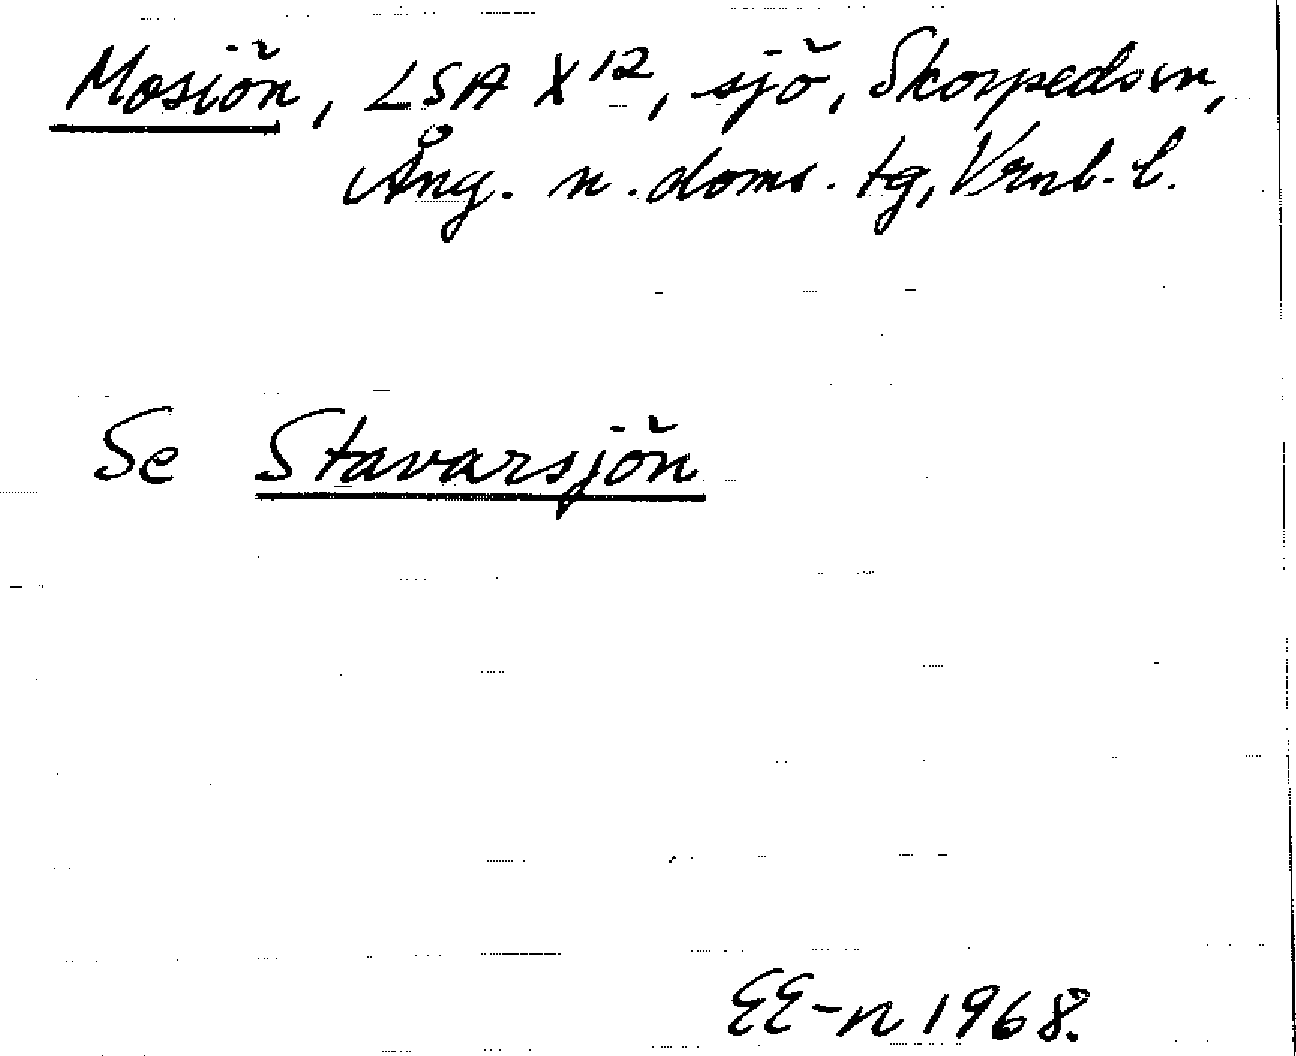 Mosiön, LSA X12, sjö, Skorpeds sn,
Ång. n. doms. tg, Vrnl. l.
Se Stavarsjön
EE-n 1968.